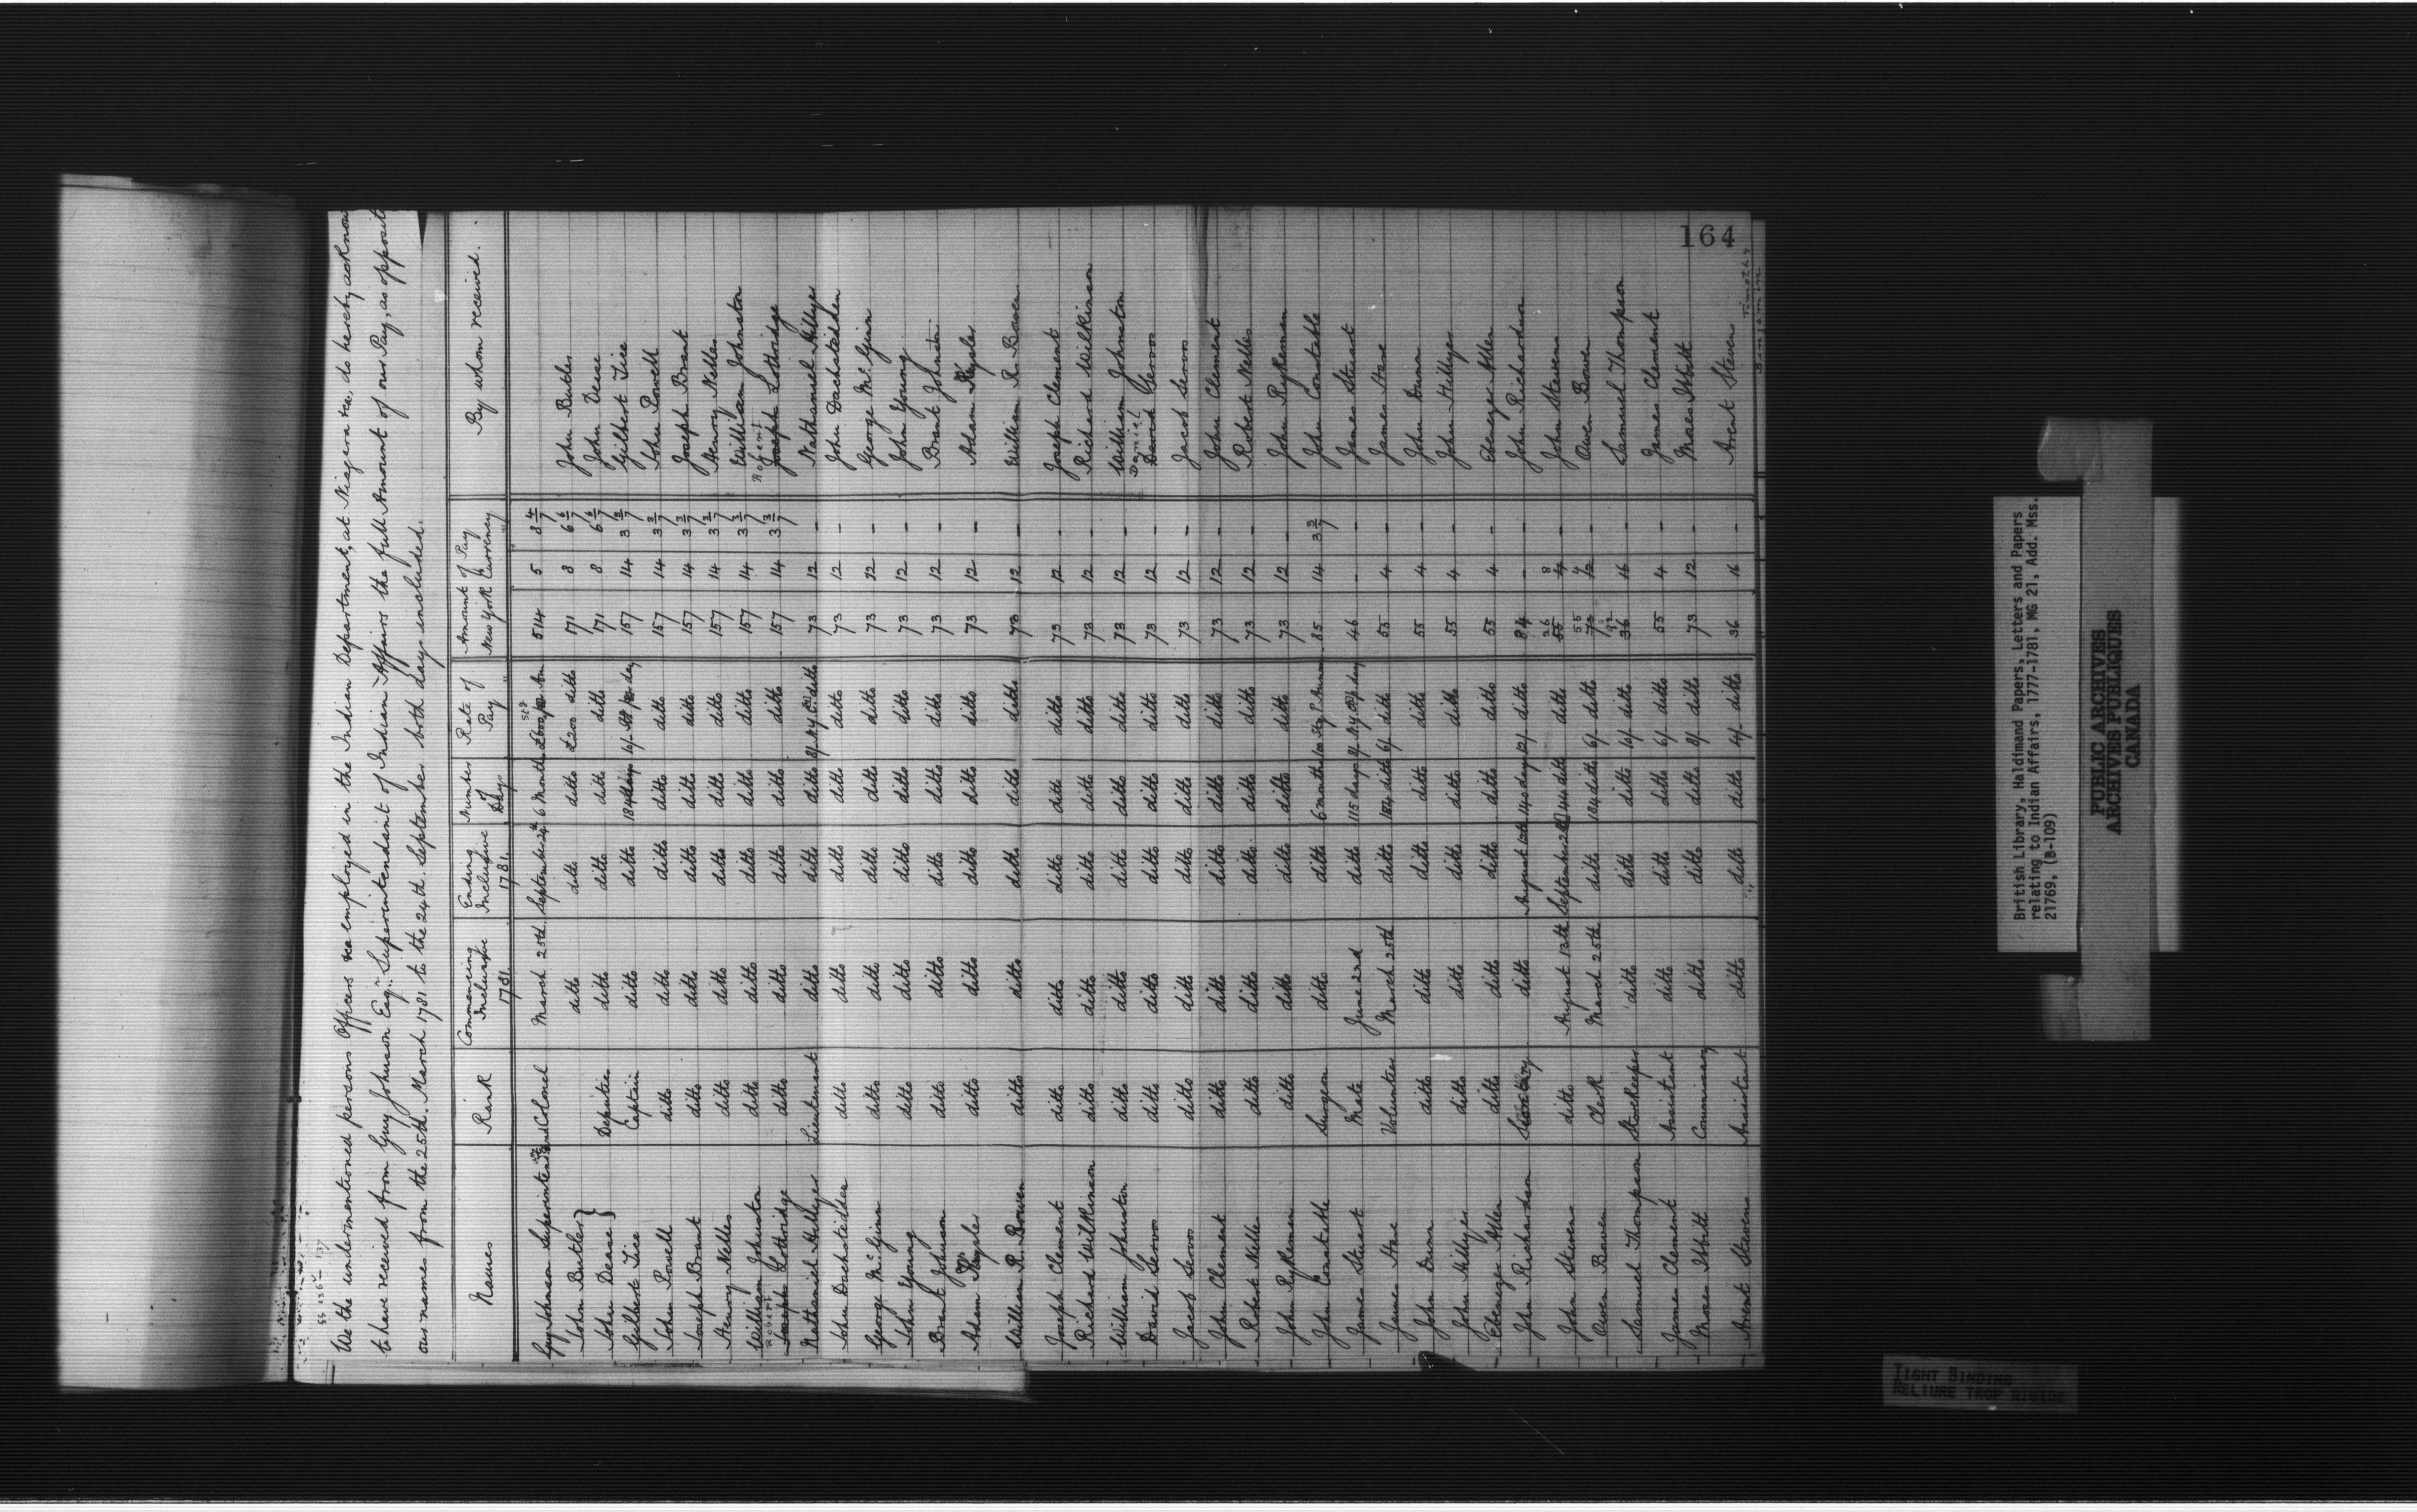 164
55 136-137
We the undermentioned persons Officers &ca employed in the Indian Department, at Niagara &ca, do hereby acknow
to have received from Guy Johnson Esqr. Superintendant of Indian Affairs the full Amount of our Pay, as opposit
our names from the 25th. March 1781 to the 24th. September both days included.
Names Rank Commencing Inclusive 1781. Ending Inclusive 1781. Number of Days Rate of Pay Amount of Pay New York Currency By whom received.
Guy Johnson Superintendt and Colonel March 25th. September 24th 6 Months £600 per Ann 514 5 8 4/7
John Butler ditto ditto ditto £200 ditto 171 8 6 6/7 John Butler
John Dease } Deputies ditto ditto ditto ditto 171 8 6 6/7 John Dease
Gilbert Tice Captain ditto ditto 184 days 10/ St. per day 157 14 3 3/7 Gilbert Tice
John Powell ditto ditto ditto ditto ditto 157 14 3 3/7 John Powell
Joseph Brant ditto ditto ditto ditto ditto 157 14 3 3/7 Joseph Brant
Henry Nelles ditto ditto ditto ditto ditto 157 14 3 3/7 Henry Nelles
William Johnston ditto ditto ditto ditto ditto 157 14 3 3/7 William Johnston
Robert Robert
Joseph Lottridge ditto ditto ditto ditto ditto 157 14 3 3/7 Joseph Lottridge
Nathaniel Hillyer Lieutenant ditto ditto ditto 8/ N.Y. Cy. ditto 73 12 - Nathaniel Hillyer
John Dachsteder ditto ditto ditto ditto ditto 73 12 - John Dachstedder
George McGinn ditto ditto ditto ditto ditto 73 12 - George McGinn
John Young ditto ditto ditto ditto ditto 73 12 - John Young
Brant Johnson ditto ditto ditto ditto ditto 73 12 - Brant Johnston
Adam Keysler ditto ditto ditto ditto ditto 73 12 - Adam Keysler
William R. Bowen ditto ditto ditto ditto ditto 73 12 - William R. Bowen
Joseph Clement ditto ditto ditto ditto ditto 73 12 - Joseph Clement
Richard Wilkinson ditto ditto ditto ditto ditto 73 12 - Richard Wilkinson
William Johnston ditto ditto ditto ditto ditto 73 12 - William Johnston
Daniel
David Servos ditto ditto ditto ditto ditto 73 12 - David Servos
Jacob Servos ditto ditto ditto ditto ditto 73 12 - Jacob Servos
John Clement ditto ditto ditto ditto ditto 73 12 - John Clement
Robert Nelles ditto ditto ditto ditto ditto 73 12 - Robert Nelles
John Rykeman ditto ditto ditto ditto ditto 73 12 - John Rykeman
John Constable Surgeon ditto ditto 6 months 85 14 3 3/7 John Constable
James Stuart Mate June 2nd ditto 115 days 8/ N.Y. Cy. p. day 46 - - James Stuart
James Hare Volunteer March 25th ditto 184 ditto 6/ ditto 55 4 - James Hare
John Dunn ditto ditto ditto ditto ditto 55 4 - John Dunn
John Hillyer ditto ditto ditto ditto ditto 55 4 - John Hillyer
Ebenezer Allen ditto ditto ditto ditto ditto 55 4 - Ebenezer Allen
John Richardson Secretary ditto August 12th 140 days 12/ ditto 84 - - John Richardson
26 8
John Stevens ditto August 13th September 24th 44 ditto ditto 55 4 - John Stevens
55 4
Owen Bowen Clerk March 25th ditto 184 ditto 6/ ditto 73 12 Owen Bowen
92
Samuel Thompson Storekeeper ditto ditto ditto 10/ ditto 36 16 - Samuel Thompson
James Clement Assistant ditto ditto ditto 6/ ditto 55 4 - James Clement
Moses Ibbitt Commissary ditto ditto ditto 8/ ditto 73 12 - Moses Ibbitt
Arent Stevens Assistant ditto ditto ditto 4/ ditto 36 16 - Arent Stevens
Timothy
Benjamin
British Library, Haldimand Papers, Letters and Papers
relating to Indian Affairs, 1777-1781, MG 21, Add. Mss.
21769, (B-109)
PUBLIC ARCHIVES
ARCHIVES PUBLIQUES
CANADA
TIGHT BINDING
RELIURE TROP RIGIDE